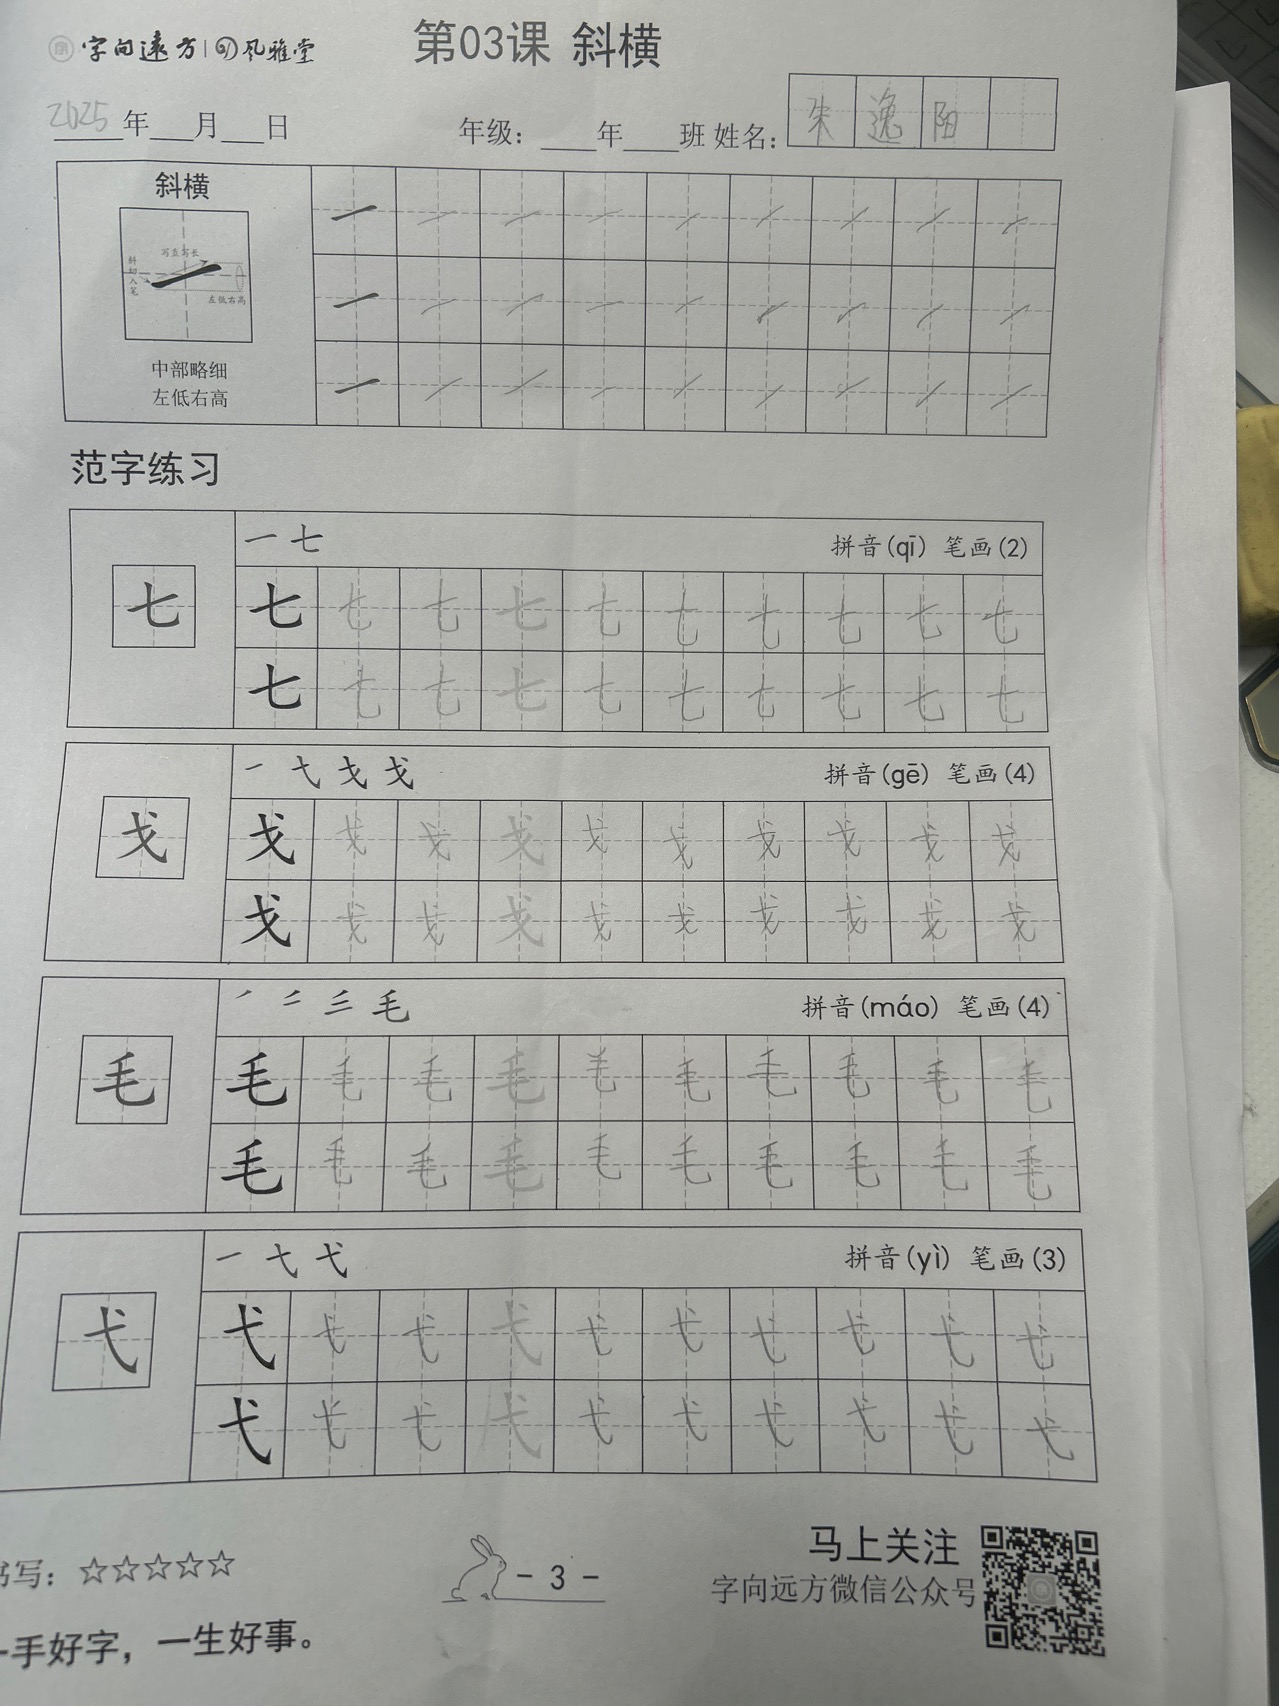 字向远方 | 风雅堂
第03课 斜横
2025年___月___日 年级：___年___班 姓名：朱逸阳
斜横
写直写长
斜切入笔
左低右高
中部略细
左低右高
范字练习
一 七 拼音(qī) 笔画(2)
七 七 七 七 七 七 七 七 七 七 七
七 七 七 七 七 七 七 七 七 七
一 弋 戈 戈 拼音(gē) 笔画(4)
戈 戈 戈 戈 戈 戈 戈 戈 戈 戈 戈
戈 戈 戈 戈 戈 戈 戈 戈 戈 戈
毛 拼音(máo) 笔画(4)
毛 毛 毛 毛 毛 毛 毛 毛 毛 毛 毛
毛 毛 毛 毛 毛 毛 毛 毛 毛 毛
一 弋 拼音(yì) 笔画(3)
弋 弋 弋 弋 弋 弋 弋 弋 弋 弋 弋
弋 弋 弋 弋 弋 弋 弋 弋 弋 弋
书写：☆☆☆☆☆
- 3 -
马上关注
字向远方微信公众号
一手好字，一生好事。